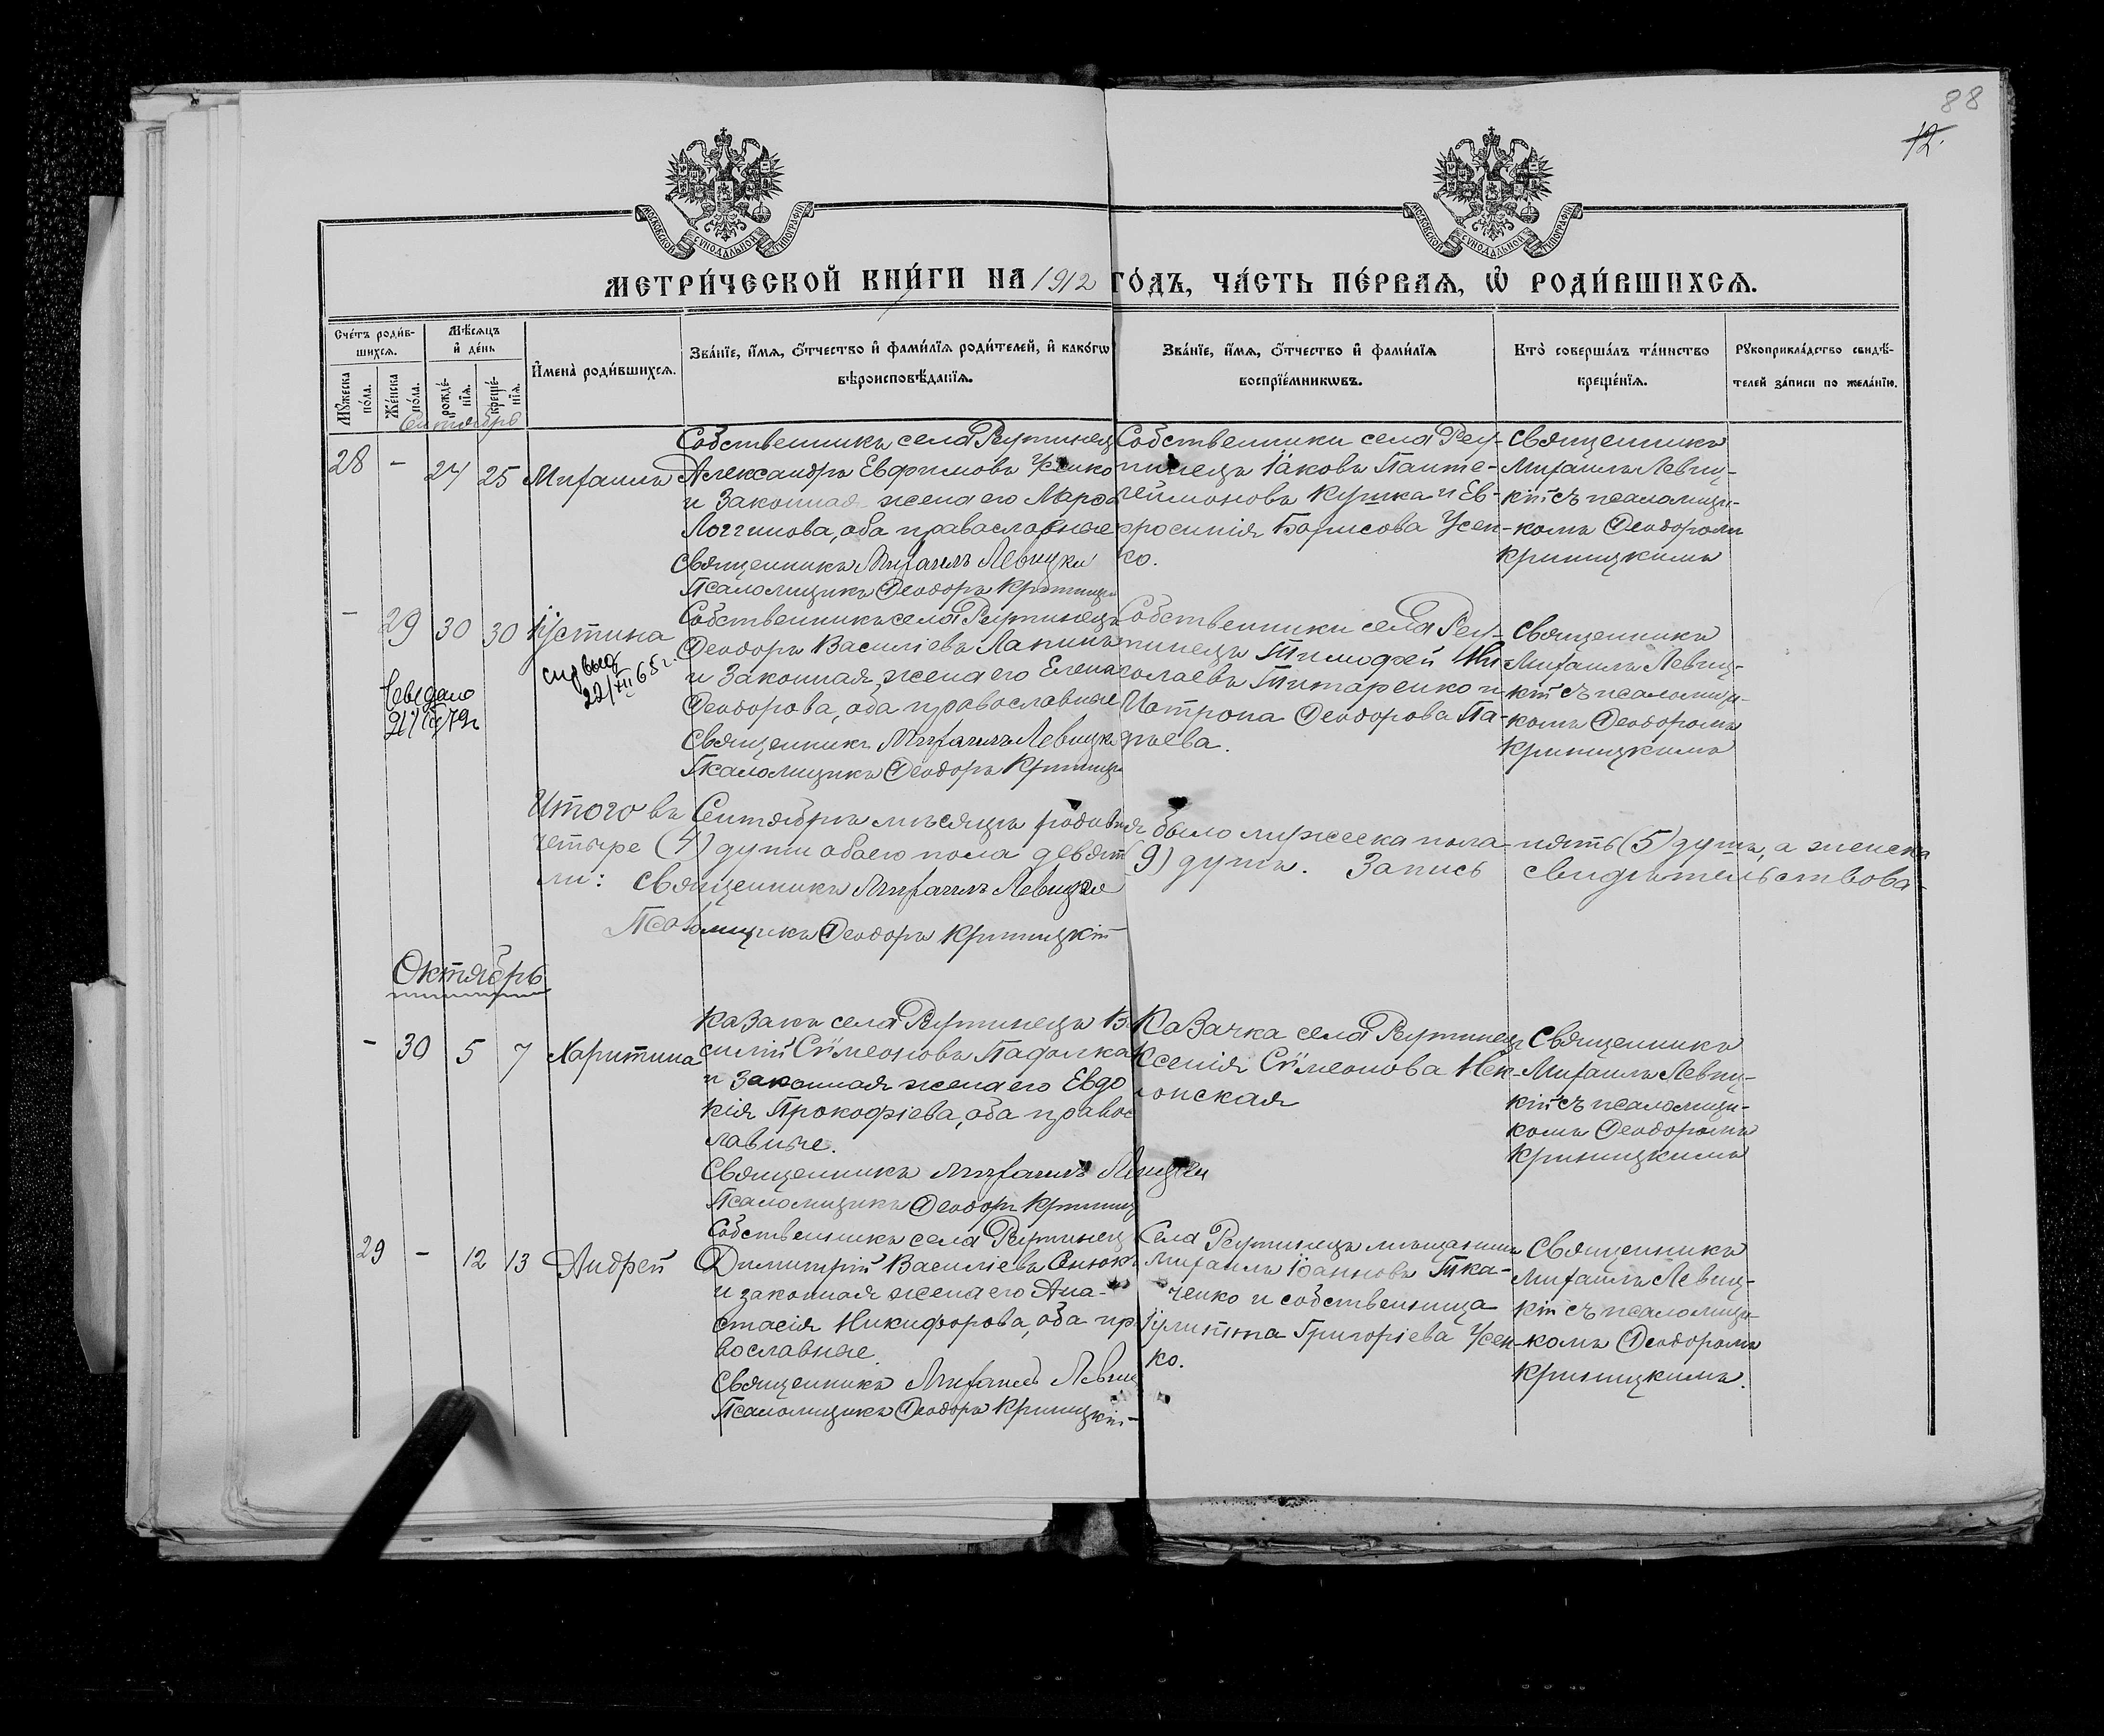 88
12.
МОСКОВСКОЙ СѴНОДАЛЬНОЙ ТИПОГРАФІИ
МОСКОВСКОЙ СѴНОДАЛЬНОЙ ТИПОГРАФІИ
МЕТРИ́ЧЕСКОЙ КНИ́ГИ НА 1912 ГО́ДЪ, ЧА́СТЬ ПЕ́РВАѦ, Ѡ҆ РОДИ́ВШИХСѦ.
Сче́тъ роди́в-
шихсѧ.
Мꙋ́жеска по́ла.
Же́нска по́ла.
Мѣ́сѧцъ
и҆ де́нь
рожде́-
нїѧ.
креще́-
нїѧ.
И҆мена̀ роди́вшихсѧ.
Зва́нїе, и҆́мѧ, ѻ҆́тчество и҆ фами́лїѧ роди́телей, и҆ како́гѡ
вѣроисповѣ́данїѧ.
Зва́нїе, и҆́мѧ, ѻ҆́тчество и҆ фами́лїѧ
воспрїе́мникѡвъ.
Кто̀ соверша́лъ та́инство
креще́нїѧ.
Рꙋкоприкла́дство свидѣ́-
телей за́писи по жела́нїю.
Сентябрь
28 - 24 25 Михаилъ
Собственникъ села Реутинец
Александръ Евфимовъ Усенко
и законная жена его Марѳа
Логгинова, оба православные
Священникъ Михаилъ Левицки
Псаломщикъ Ѳеодоръ Криницки
Собственники села Реу-
тинецъ Іаковъ Панте-
леимоновъ Кушка и Ев-
фросинія Борисова Усен-
ко.
Священникъ
Михаилъ Левиц-
кій съ псаломщи-
комъ Ѳеодоромъ
Криницкимъ
- 29 30 30 Іустина
спр выд
22/XII 65 г.
Свед дано
Собственникъ села Реутинецъ
Ѳеодоръ Василіевъ Лапинъ
и законная жена его Елена
Ѳеодорова, оба православные
Священникъ Михаилъ Левицк
Псаломщикъ Ѳеодоръ Криницки
Собственники села Реу-
тинецъ Тимофей Ни
колаевъ Титаренко и
Ѳеодорова Па-
Священникъ
Михаилъ Левиц-
кій съ псаломщи-
комъ Ѳеодоромъ
Криницкимъ
Итого въ Сентябрѣ мѣсяцѣ родивш было мужеска пола пять (5) душъ, а женска
четыре (4) души обоего пола девят (9) душъ. Запись свидѣтельствова-
ли: Священникъ Михаилъ Левицкій
Псаломщикъ Ѳеодоръ Криницкій
Октябрь
- 30 5 7 Харитина
Казакъ села Реутинецъ Ва
силій Сѵмеоновъ Падалка
и законная жена его Евдо
кія Прокофіева, оба правос
лавные.
Священникъ Михаилъ Левицки
Псаломщикъ Ѳеодоръ Криниц
Казачка села Реутинецъ
Ксенія Сѵмеонова
Священникъ
Михаилъ Левиц-
кій съ псаломщи-
комъ Ѳеодоромъ
Криницкимъ
29 - 12 13 Андрей
Собственникъ села Реутинец
Димитрій Василіевъ
и законная жена его Ана-
стасія Никифорова, оба пра
вославные.
Священникъ Михаилъ Левиц
Псаломщикъ Ѳеодоръ Криницкій
Села Реутинецъ мѣщанинъ
Михаилъ Іоанновъ Тка-
ченко и собственница
Іулиттна Григоріева Усен-
ко.
Священникъ
Михаилъ Левиц-
кій съ псаломщи-
комъ Ѳеодоромъ
Криницкимъ.